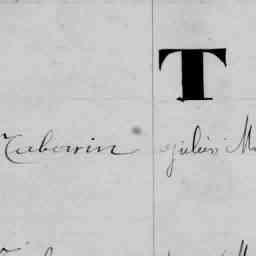 T
Tabarin Julien M